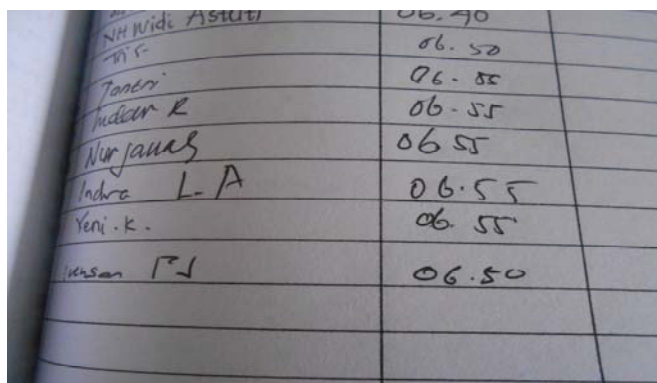 NH Widi Astuti 06.40
06.50
Tantri 06.55
Indar R 06-55
Nurjanah 06 55
Indra L.A 06.55
Yeni.K. 06.55
06.50